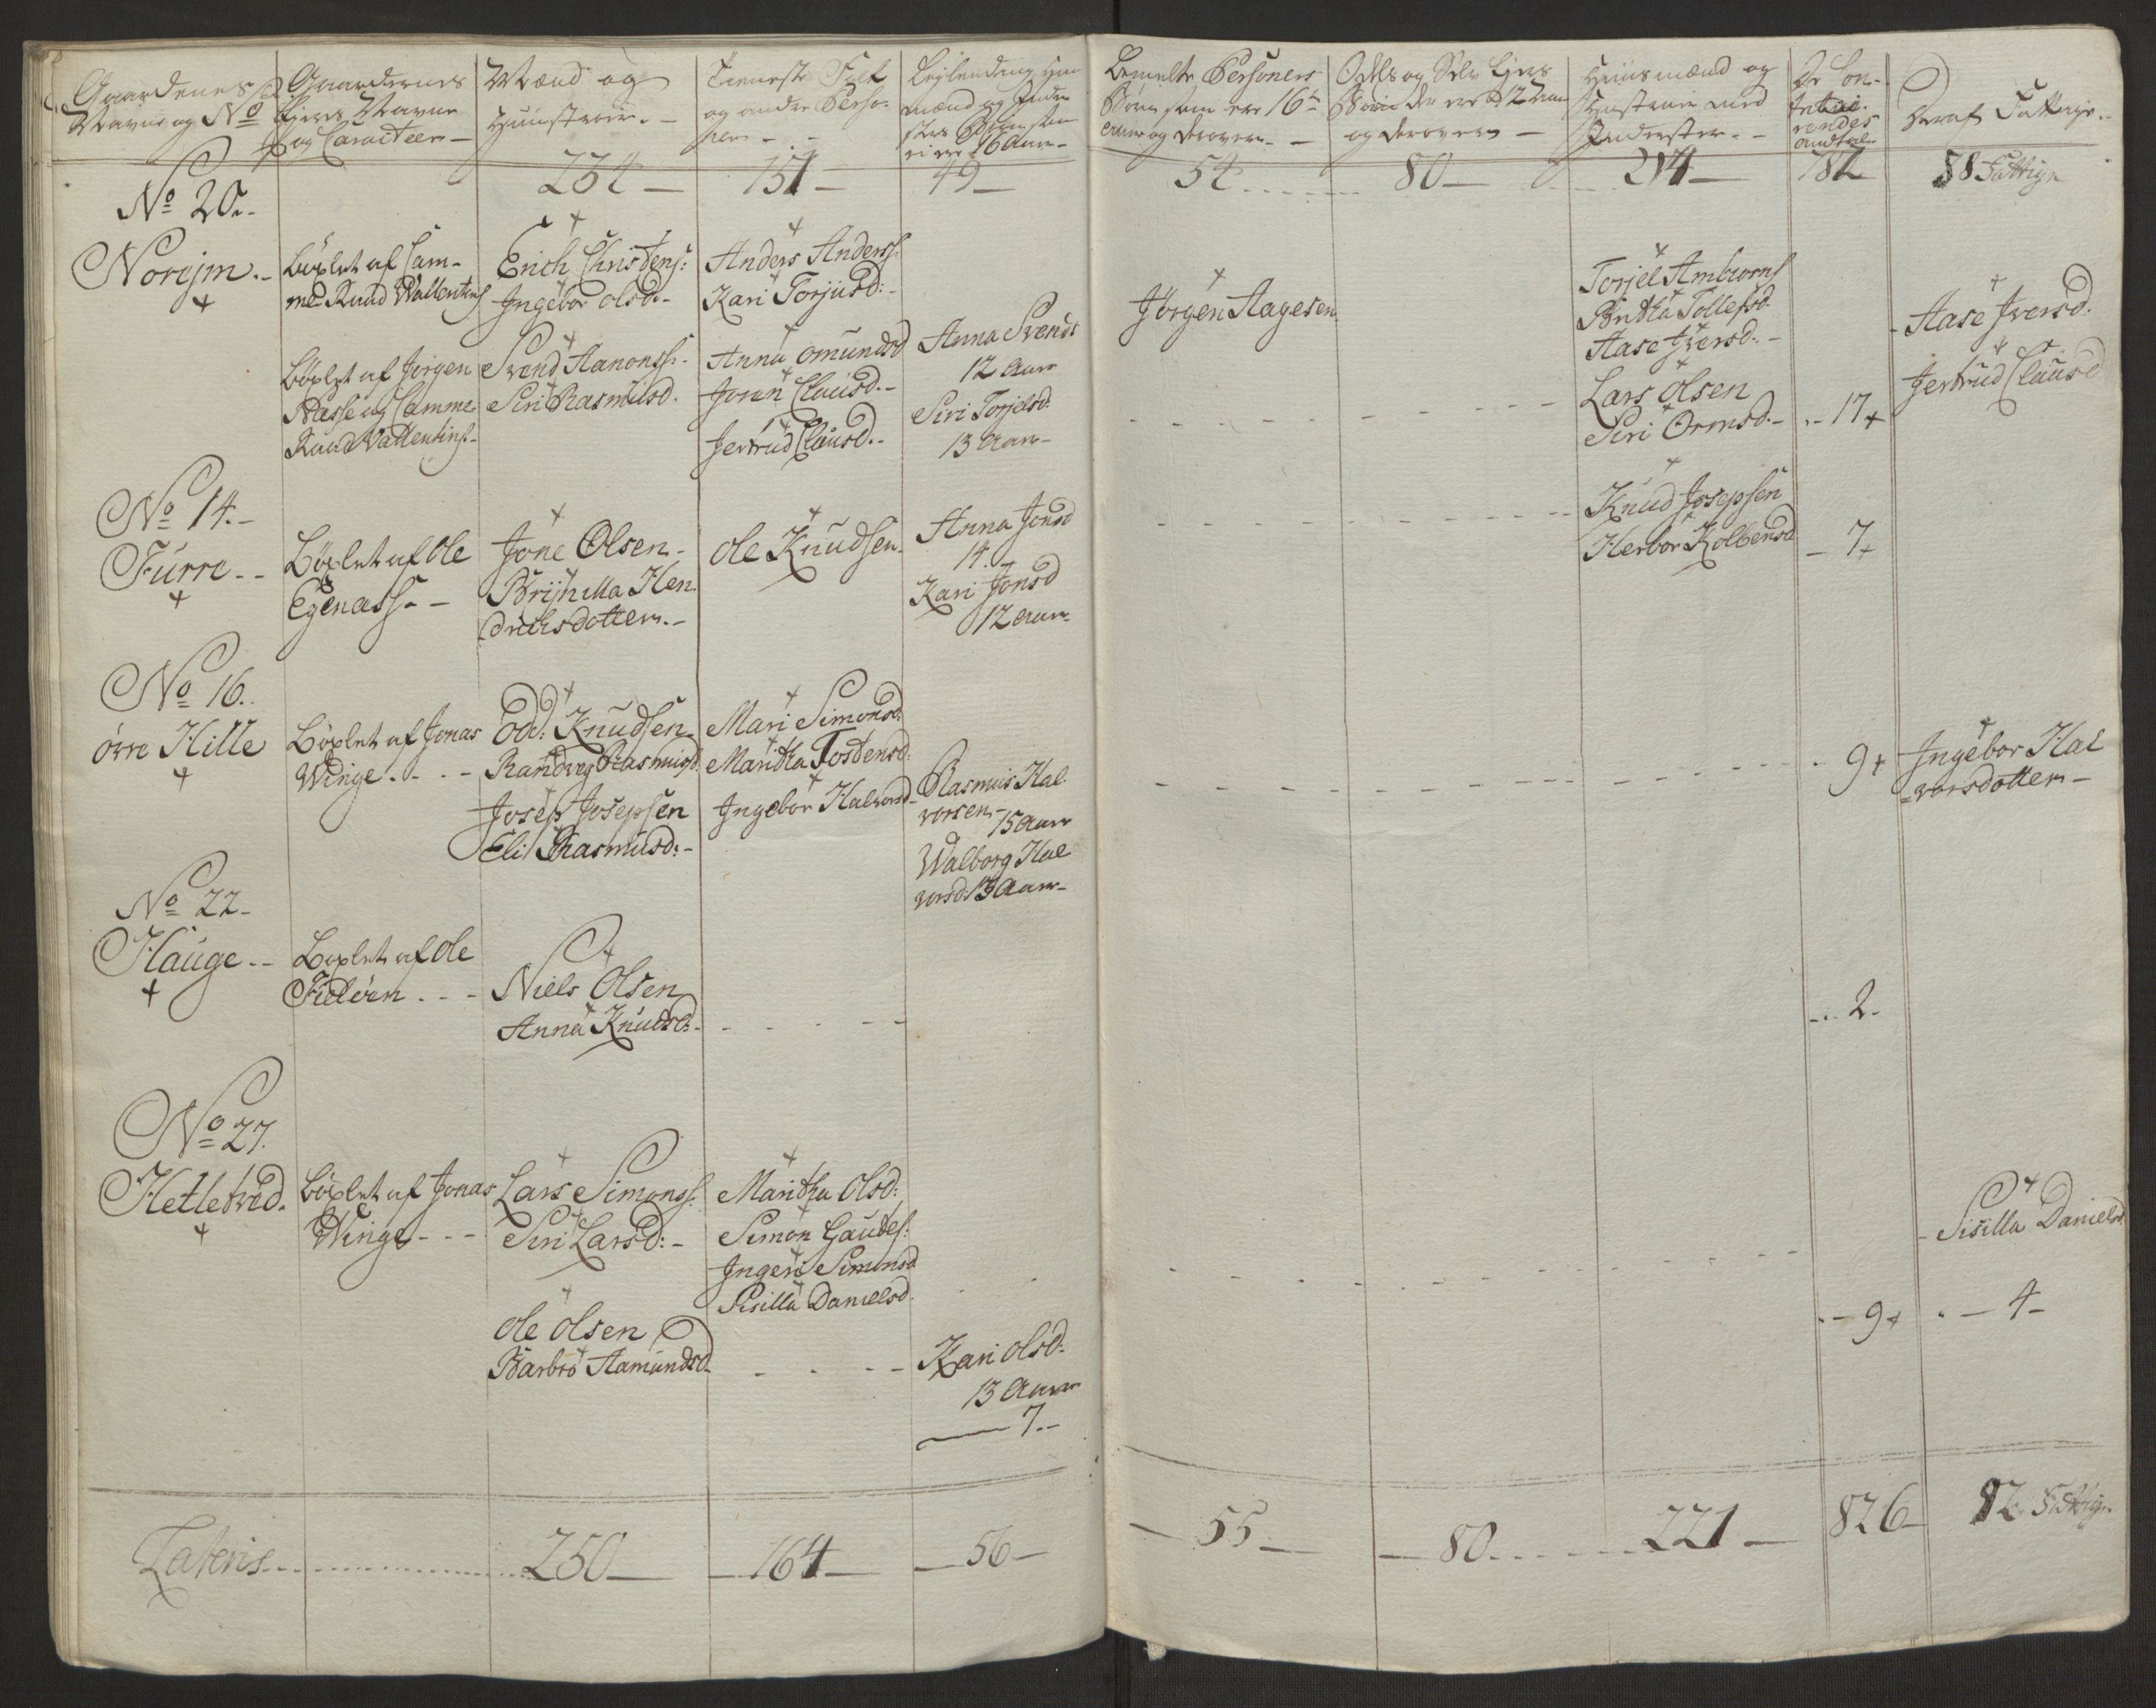 Gaardenes
Navne og No
Gaardernes
Ejeres Navne
og Caracteer -
Mænd og
Hustruer. -
Tieneste Folk
og andre Perso-
ner - -
mænd og Inder
sters Børn som
ei ere 16 Aar -
Bemelte Personers
Børn som ere 16
og derover. -
Odels og Selv Ejers
Børn der ere 12 Aar
og derover -
Huusmænd og
Hustruer med
Inderster. -
De Con-
tribui-
rendes
Andtal
Deraf Fattige. -
234 -
151 -
49 -
54
80 -
214 -
782
58 Fattige
No 20. -
Norejm. -
Böxlet af Sam-
me Knud Wallentins
Erich Christens:
Ingebor Olsd. -
Anders Anders:
Kari Torjusd: -
Jörgen Aagesen
Torjel Ambiorns
Britha Tollefsd
Aase Iversd: -
- Aase Iversd.
Böxlet af Jörgen
Hasse og Samme
Knud Vallentins -
Svend Aanonss: -
Siri Rasmusd.
Anna Omundsd
Joren Clausd. -
Jertrud Clausd. -
Anna Svends
12 Aar
Siri Torjelsd.
13 Aar -
Lars Olsen
Siri Ormsd. -
- 17
Jertrud Clausd
No 14. -
Furre - -
Böxlet af Ole
Egenass - -
Jone Olsen -
Hen
drichsdotter. -
Ole Knudsen.
Anna Jonsd
14. -
Kari Jonsd
12 Aar -
Knud Josepsen
Herbor Kolbensd
- 7
No 16.
övre Hille
Böxlet af Jonas
Winge. - - -
Odd: Knudsen
Randveg Rasmusd:
Josep Josepsen
Eli Rasmusd: -
Mari Simonsd:
Maritha Tostensd:
Ingebor Halvorsd -
Rasmus Hal
vorsen -
15 Aar
Walborg Hal
vorsd: 13 Aar -
- 9
Ingebor Hal
= vorsdotter -
No 22 -
Hauge - -
Böxlet af Ole
Fidiöen. - -
Niels Olsen
Anna Knudsd: -
- - 2 -
No 27.
Hetletved.
Böxlet af Jonas
Winge - - -
Lars Simons:
Siri Larsd: -
Maritha Olsd:
Simon Gautes:
Ingeri Simonsd
Sisilla Danielsd.
- Sisilla Danielsd
Ole Olsen
Barbro Aamundsd -
Kari Olsd:
13 Aar
7. -
- 9
- 4 -
Lateris
250 -
- 164 -
- 56 -
- 55 -
- 80
221 -
826 -
82 Fattige